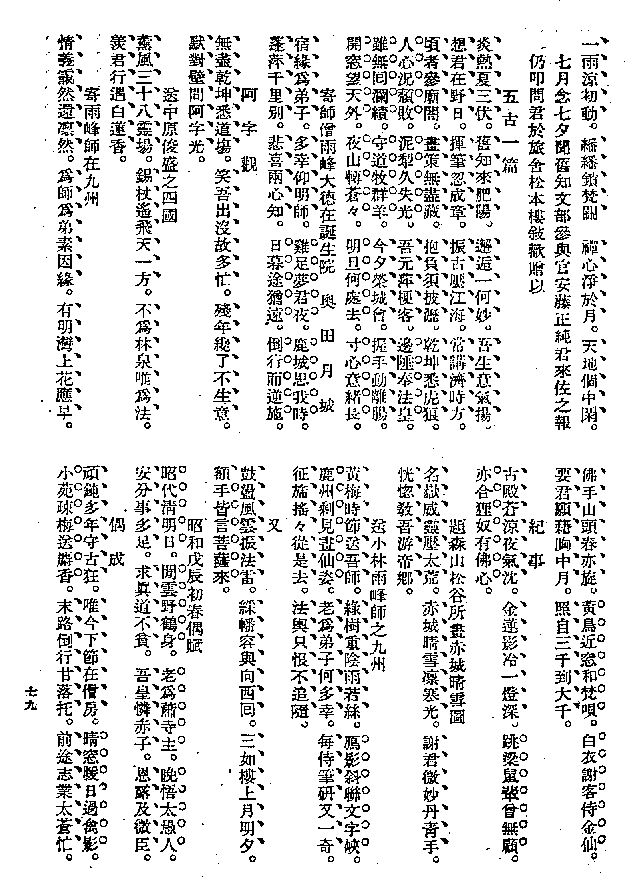 一雨涼初動。緜緜鎖梵關。禪心淨於月。天地個中閑。
七月念七夕聞舊知文部參與官安藤正純君來佐之報
仍叩問君於旅舍松本樓敍歡贈以
五古一篇
炎熱夏三伏。舊知來肥陽。邂逅一何妙。吾生意氣揚。
想君在野日。揮筆忽成章。振古壓江海。常講濟時方。
頃者參廟閣。畫策無盡藏。抱負須披瀝。乾坤悉虎狼。
人心沉頹敗。泥犁久失光。吾元萍梗客。邊陲奉法皇。
雖無回瀾績。守道牧群羊。今夕榮城會。握手動離腸。
開窓望天外。夜山轉蒼々。明旦何處去。寸心意緒長。
寄師僧雨峰大德在誕生院 奧田月城
宿緣爲弟子。多幸仰明師。雞足夢君夜。鹿城思我時。
蓬萍千里別。悲喜兩心知。日暮途猶遠。倒行而逆施。
阿字觀
無盡乾坤悉道場。笑吾出沒故多忙。殘年纔了不生意。
默對壁間阿字光。
送中原俊盛之四國
薰風三十八靈場。錫杖遙飛天一方。不爲林泉唯爲法。
羨君行遇白蓮香。
寄雨峰師在九州
情義藹然還凛然。爲師爲弟素因緣。有明灣上花應早。
佛手山頭春亦旋。黃鳥近窓和梵唄。白衣謝客侍金仙。
要君願藉胸中月。照自三千到大千。
紀事
古殿蒼涼夜氣沈。金蓮影冷一燈深。跳梁鼠輩曾無顧。
亦合狸奴有佛心。
題森山松谷所畫赤城晴雪圖
名嶽威嚴壓太荒。赤城晴雪凛寒光。謝君微妙丹靑手。
恍惚敎吾游帝鄕。
送小林雨峰師之九州
黃梅時節送吾師。綠樹重陰雨若絲。鴈影斜聯文字峽。
鹿州剩見畫仙姿。老爲弟子何多幸。每侍筆硏又一奇。
征旆搖々從是去。法輿只恨不追隨。
又
鼓盪風雲振法雷。綵幡容與向西回。三如樓上月明夕。
額手皆言菩薩來。
昭和戊辰初春偶賦
昭代淸明日。閒雲野鶴身。老爲蕭寺主。晚悟太愚人。
安分事多足。求眞道不貧。吾皇憐赤子。恩露及微臣。
偶成
頑鈍多年守古狂。唯今下節在僧房。晴窓暖日過禽影。
小苑疎梅送麝香。末路倒行甘落托。前途志業太蒼忙。
七九